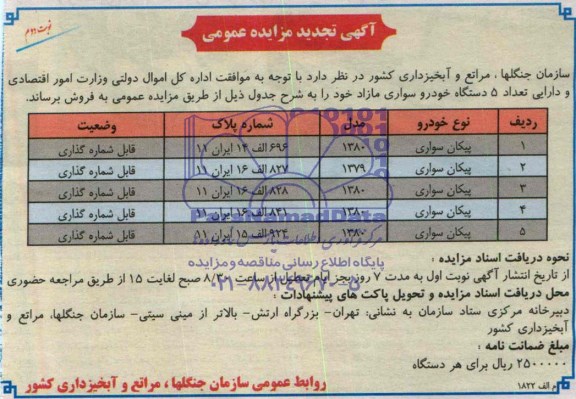 آگهی تجدید مزایده عمومی
نوبت دوم
سازمان جنگلها ، مراتع و آبخیزداری کشور در نظر دارد با توجه به موافقت اداره کل اموال دولتی وزارت امور اقتصادی
و دارایی تعداد ۵ دستگاه خودرو سواری مازاد خود را به شرح جدول ذیل از طریق مزایده عمومی به فروش برساند.
ردیف نوع خودرو مدل شماره پلاک وضعیت
۱ پیکان سواری ۱۳۸۰ ۶۹۶ الف ۱۴ ایران ۱۱ قابل شماره گذاری
۲ پیکان سواری ۱۳۷۹ ۸۲۷ الف ۱۶ ایران ۱۱ قابل شماره گذاری
۳ پیکان سواری ۱۳۸۰ ۸۲۸ الف ۱۶ ایران ۱۱ قابل شماره گذاری
۴ پیکان سواری ۱۳۸۰ ۸۳۱ الف ۱۶ ایران ۱۱ قابل شماره گذاری
۵ پیکان سواری ۱۳۸۰ ۹۲۴ الف ۱۵ ایران ۱۱ قابل شماره گذاری
ParsNamadData
پایگاه اطلاع رسانی مناقصه و مزایده
نحوه دریافت اسناد مزایده :
از تاریخ انتشار آگهی نوبت اول به مدت ۷ روز بجز ایام تعطیل از ساعت ۸/۳۰ صبح لغایت ۱۵ از طریق مراجعه حضوری
محل دریافت اسناد مزایده و تحویل پاکت های پیشنهادات :
دبیرخانه مرکزی ستاد سازمان به نشانی: تهران- بزرگراه ارتش- بالاتر از مینی سیتی- سازمان جنگلها، مراتع و
آبخیزداری کشور
مبلغ ضمانت نامه :
۲۵۰۰۰۰۰ ریال برای هر دستگاه
روابط عمومی سازمان جنگلها ، مراتع و آبخیزداری کشور
م الف ۱۸۲۲